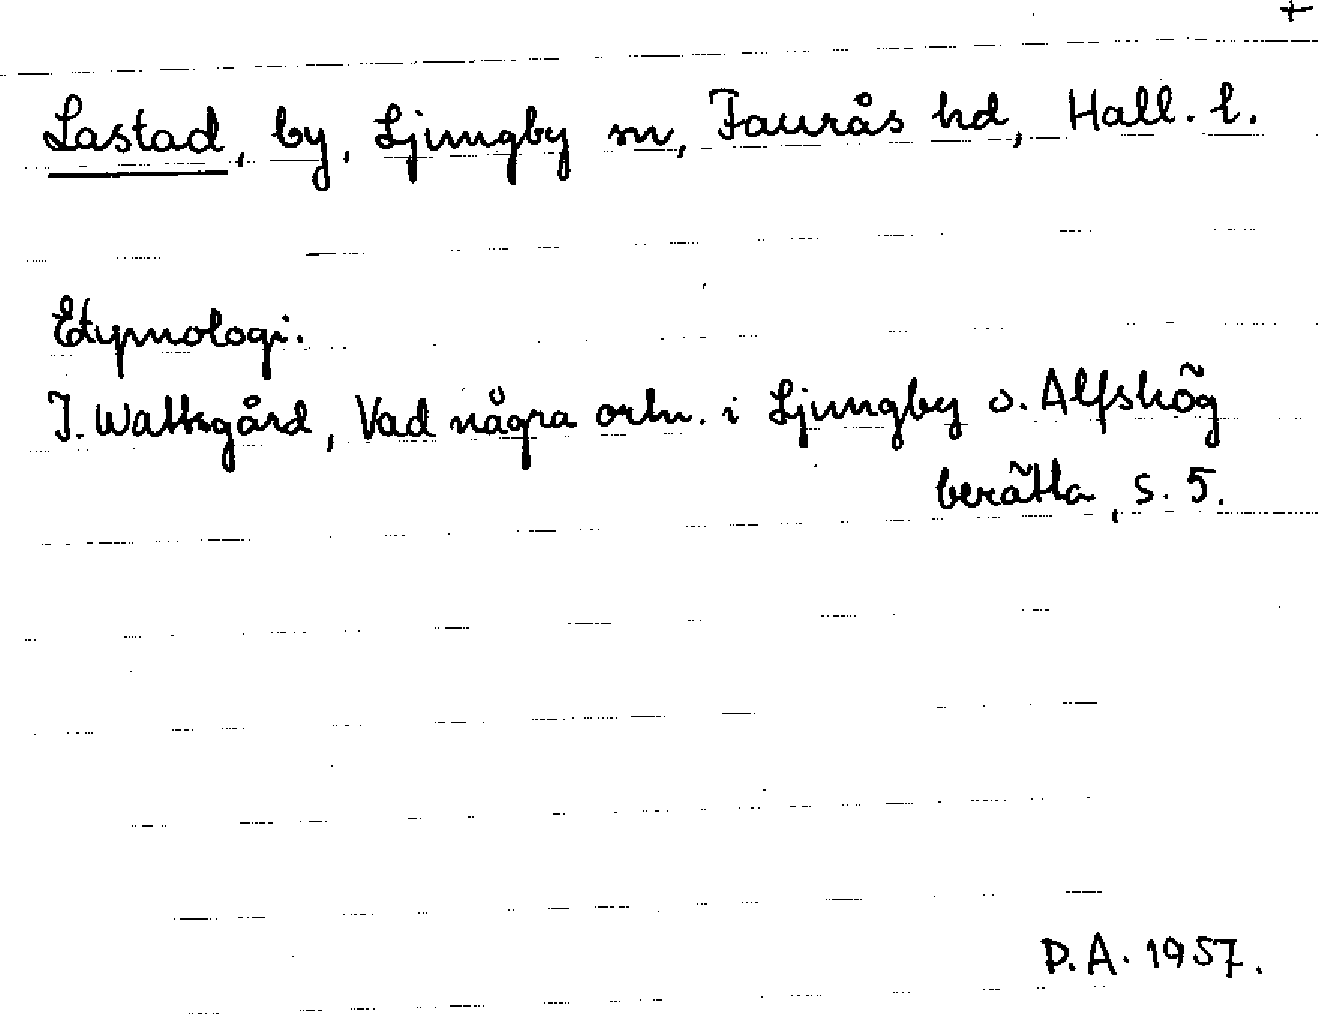 +
Lastad, by, Ljungby sn, Faurås hd, Hall. l.
Etymologi.
J. Wattsgård, Vad några ortn. i Ljungby o. Alfshög
berätta, s. 5.
P.A. 1957.